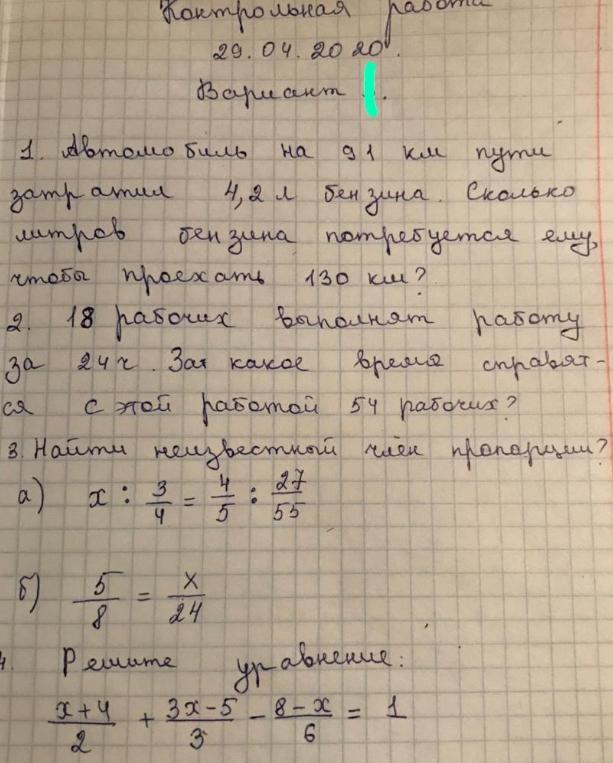 Контрольная работа
29.04.2020.
Вариант
1. Автомобиль на 91 км пути
затратил 4,2 л бензина. Сколько
литров бензина потребуется ему,
чтобы проехать 130 км?
2. 18 рабочих выполнят работу
за 24 ч. За какое время справят-
ся с этой работой 54 рабочих?
3. Найти неизвестный член пропорции?
а) x : 3/4 = 4/5 : 27/55
б) 5/8 = x/24
4. Решите уравнение:
(x+4)/2 + (3x-5)/3 - (8-x)/6 = 1